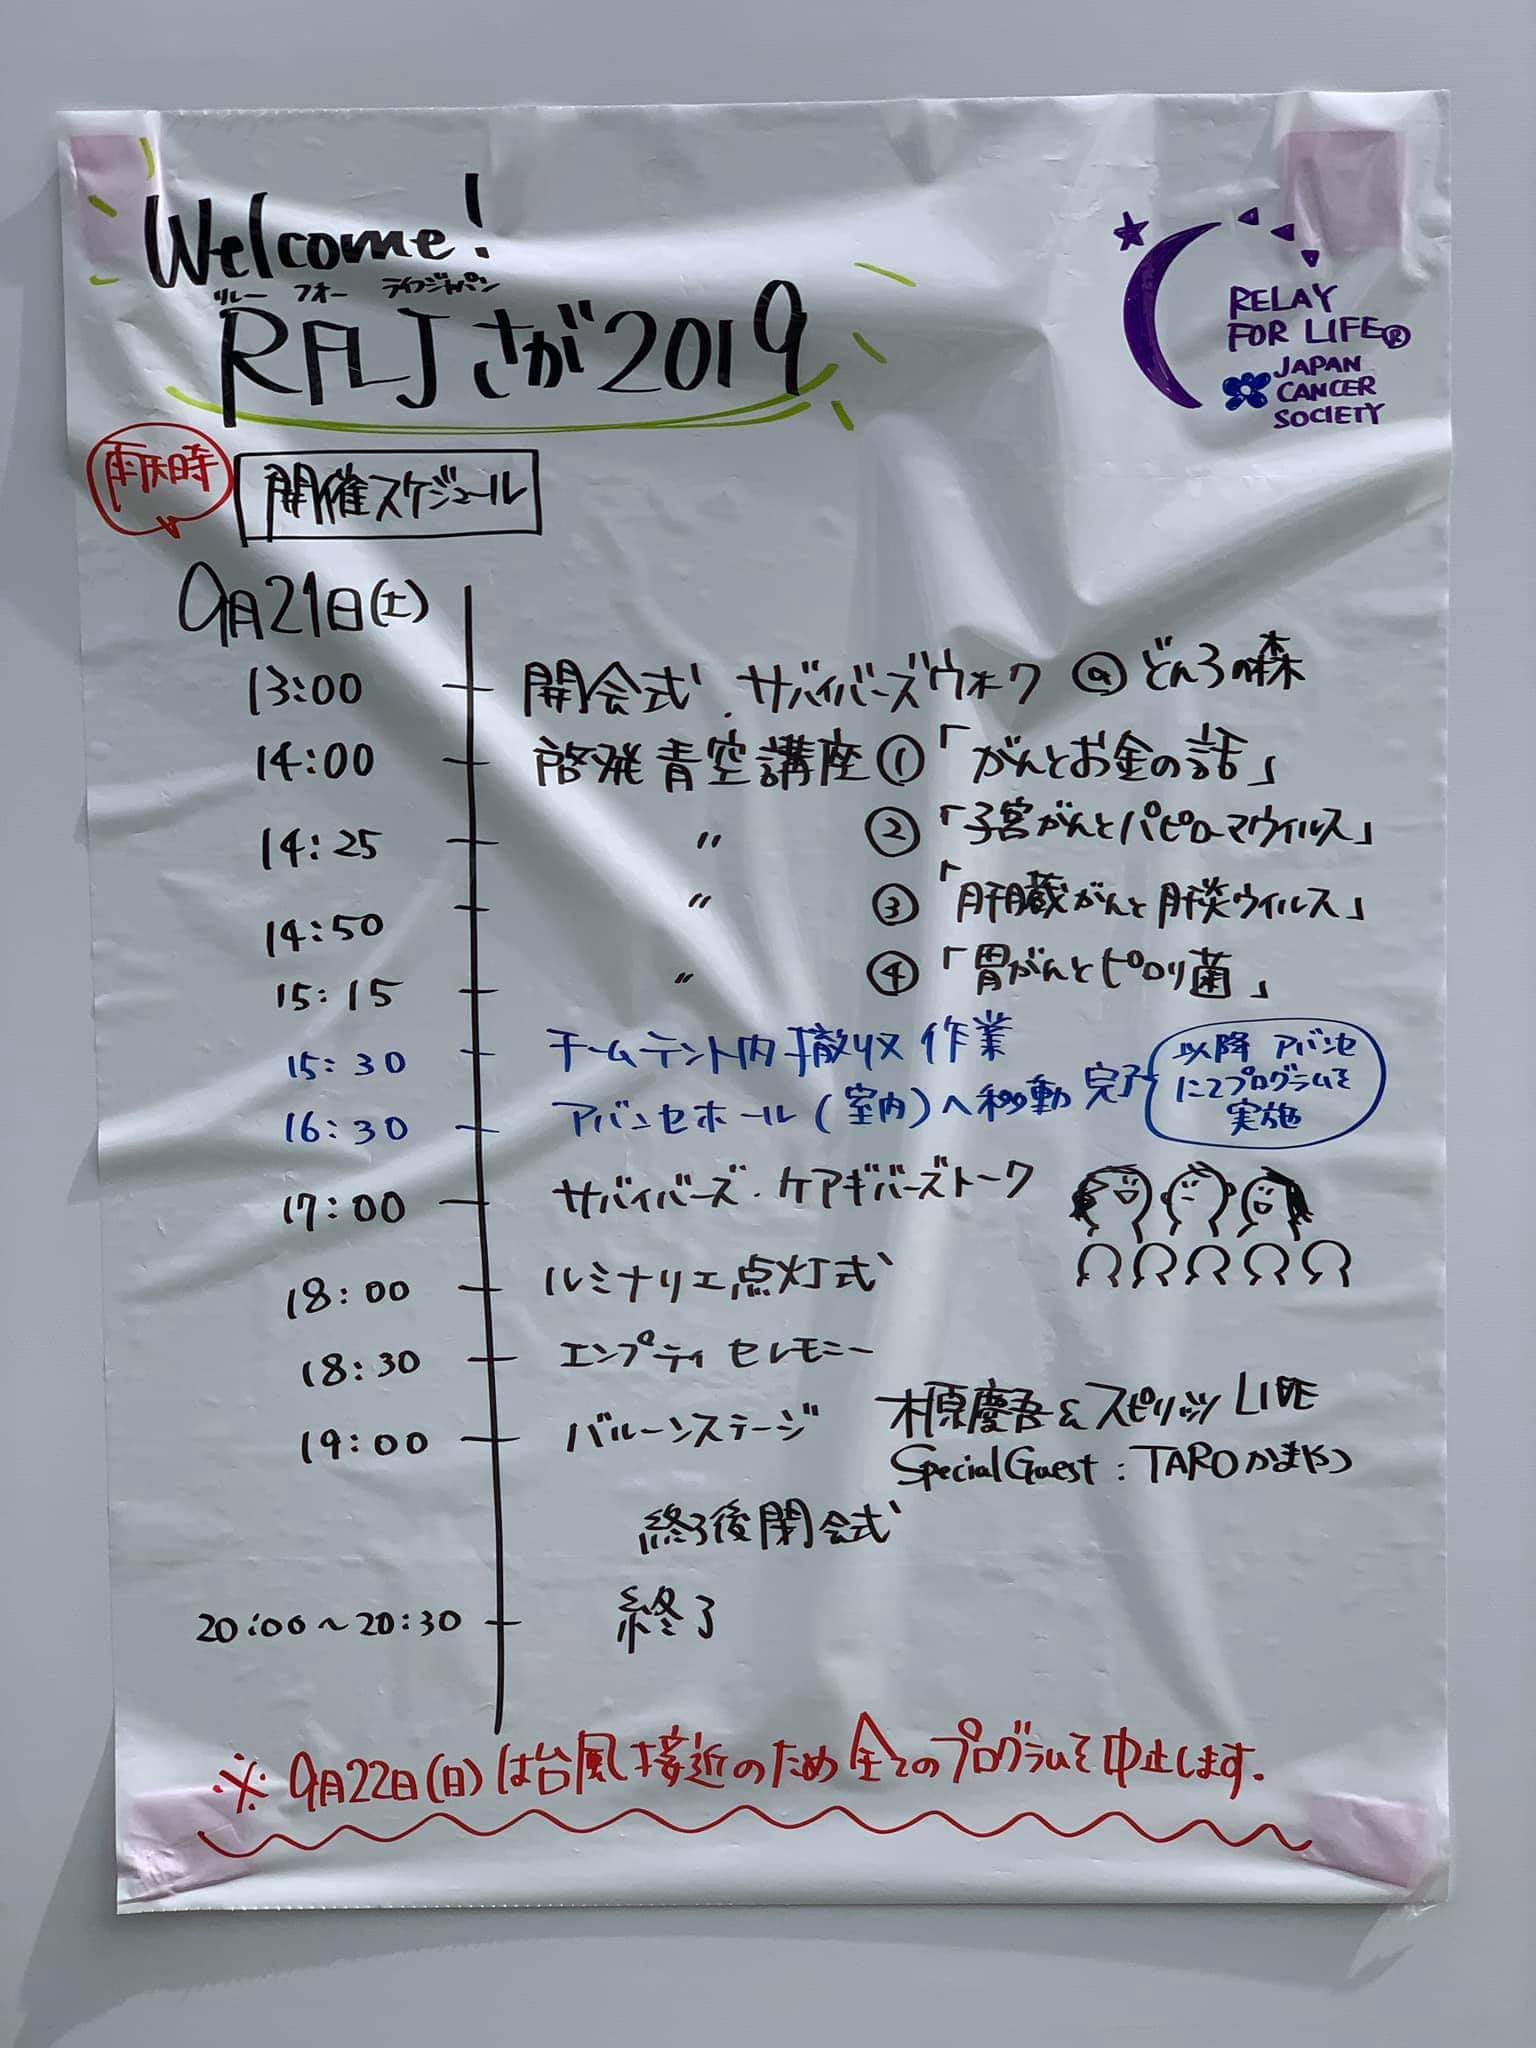 Welcome!
リレー フォー ライフジャパン
RFLJさが2019
RELAY
FOR LIFE®
JAPAN
CANCER
SOCIETY
雨天時
開催スケジュール
9月21日(土)
13:00 開会式・サバイバーズウォーク @どんどんの森
14:00 啓発青空講座①「がんとお金の話」
14:25 〃 ②「子宮がんとパピローマウイルス」
14:50 〃 ③「肝臓がんと肝炎ウイルス」
15:15 〃 ④「胃がんとピロリ菌」
15:30 チームテント内撤収作業
16:30 アバンセホール(室内)へ移動 完了
以降 アバンセ
にてプログラムを
実施
17:00 サバイバーズ・ケアギバーズトーク
18:00 ルミナリエ点灯式
18:30 エンプティ セレモニー
19:00 バルーンステージ 木原慶吾&スピリッツ LIVE
Special Guest : TARO かまやつ
終了後閉会式
20:00～20:30 終了
※9月22日(日)は台風接近のため全てのプログラムを中止します.